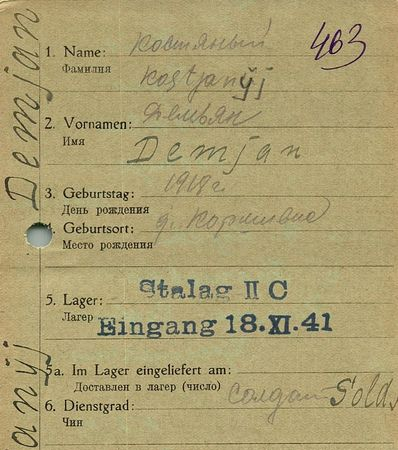 463
1. Name: Костяный
Фамилия
Kostjanÿj
2. Vornamen: Демьян
Имя
Demjan
3. Geburtstag: 1918г
День рождения
4. Geburtsort: д.
Место рождения
5. Lager: Stalag II C
Лагерь Eingang 18.XI.41
5a. Im Lager eingeliefert am:
Доставлен в лагерь (число)
6. Dienstgrad: солдат Sold
Чин
Demjan
anÿj